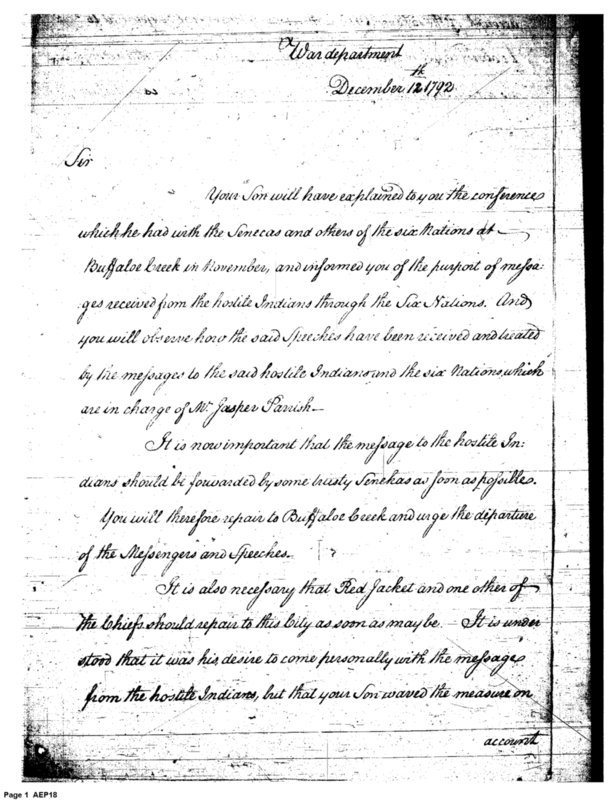 War department
December 12th 1792
Sir
Your Son will have explained to you the conference
which he had with the Senecas and others of the six Nations at
Buffaloe Creek in November, and informed you of the purport of messa:
ges received from the hostile Indians through the Six Nations. And
you will observe how the said Speeches have been received and treated
by the messages to the said hostile Indians and the six Nations, which
are in charge of Mr. Jasper Parrish—
It is now important that the message to the hostile In:
dians should be forwarded by some trusty Senekas as soon as possible.
You will therefore repair to Buffaloe Creek and urge the departure
of the Messengers and Speeches.
It is also necessary that Red Jacket and one other of
the Chiefs should repair to this City as soon as may be. It is under
stood that it was his desire to come personally with the message
from the hostile Indians, but that your Son waved the measure on
account
Page 1 AEP18